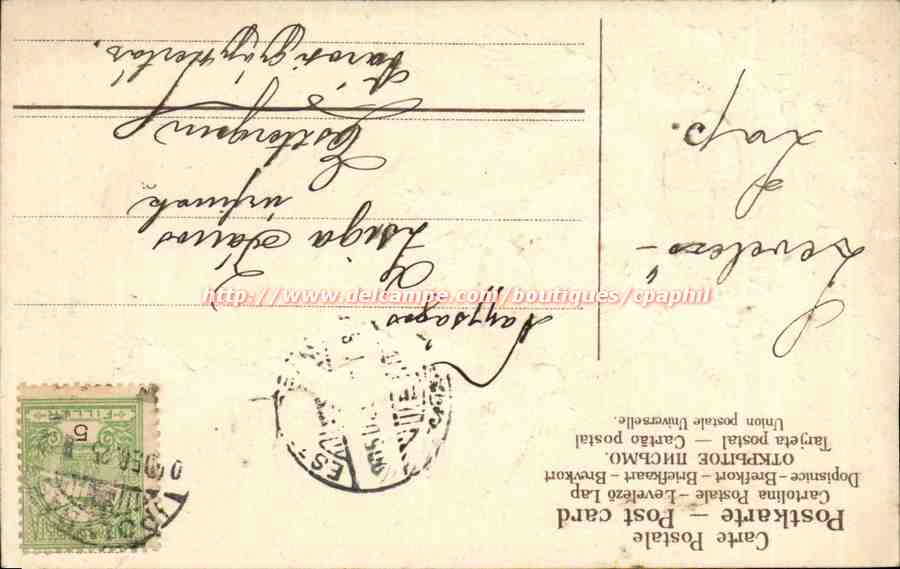 Carte Postale
Postkarte — Post card
Cartolina Postale — Levelező Lap
Dopisnice — Brefkort — Briefkaart — Brevkort
ОТКРЫТОЕ ПИСЬМО.
Tarjeta postal — Cartão postal
Union postale Universelle.
Levelező-
Lap.
Nagyságos
Zsiga János
úrfinak
Esztergom
Városi gőzfürdő
FILLÉR
5
EST
http://www.delcampe.com/boutiques/cpaphil